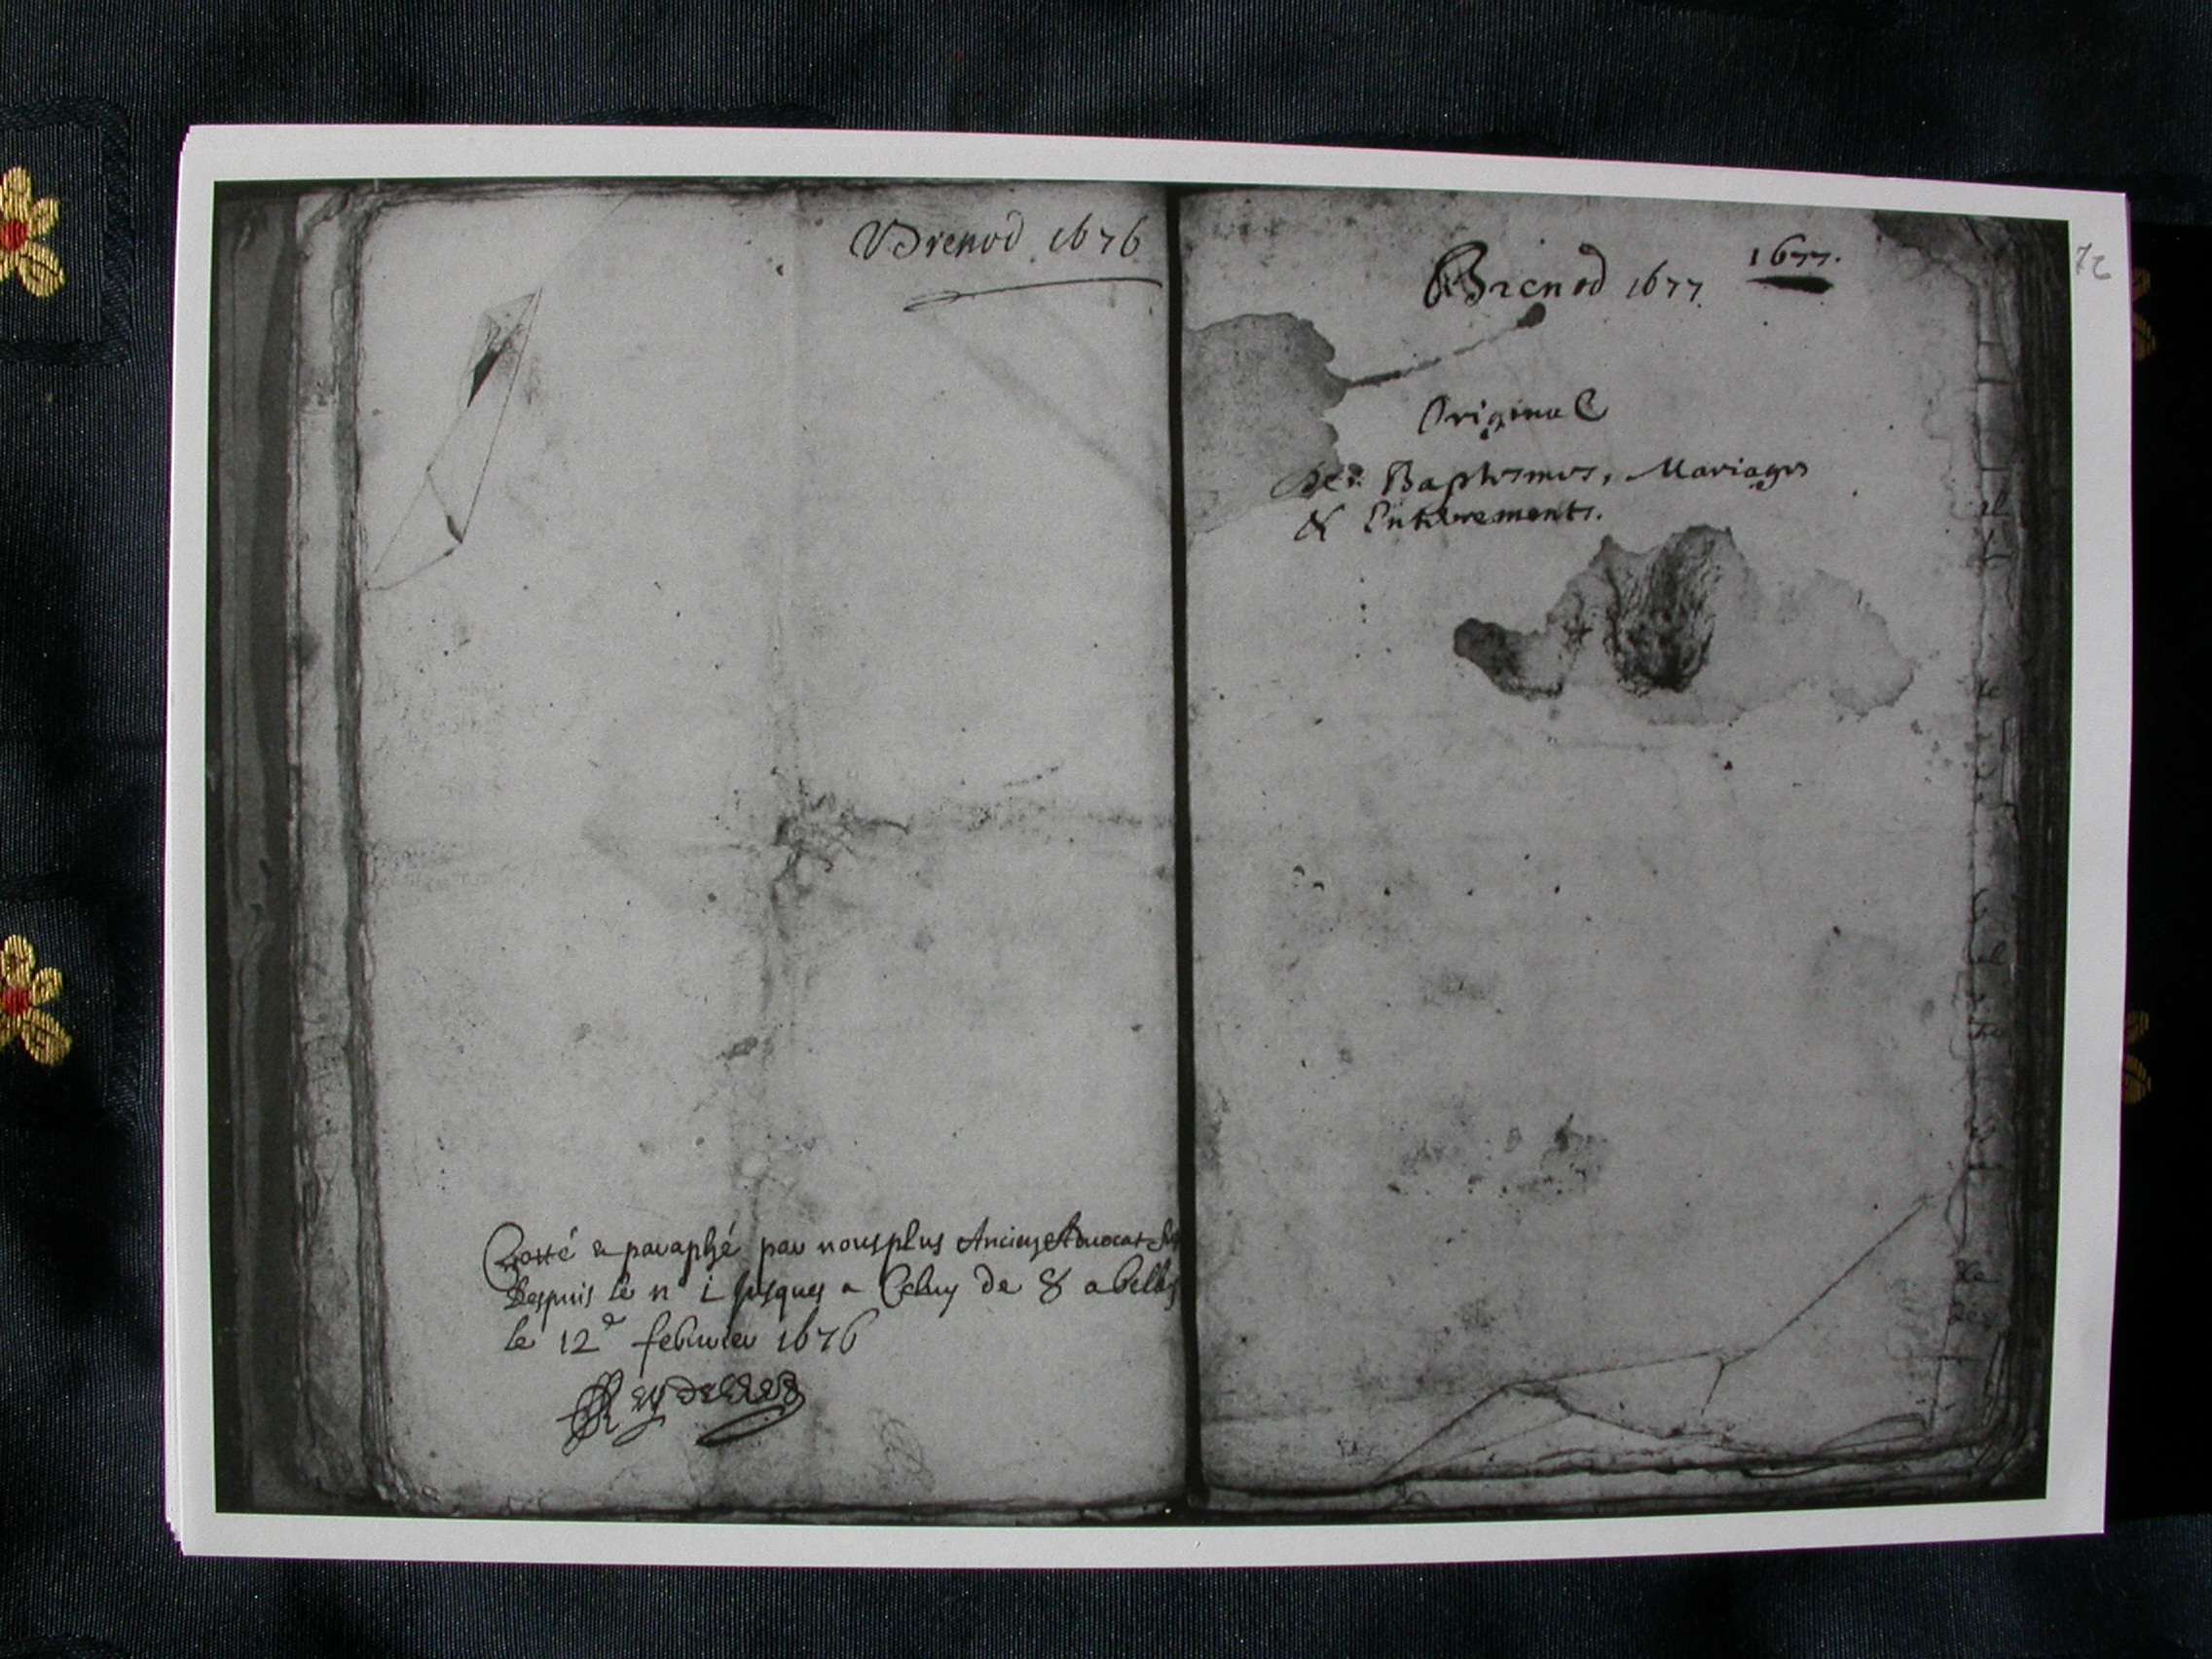 Brenod 1676
Cotté & paraphé par nous plus Ancien Advocat
Despuis le n° i jusques a Celuy de 8 a belley
le 12e febvrier 1676
Reydellet
Brenod 1677
1677.
Original
des Baptesmes, Mariages
& Enterrements.
72